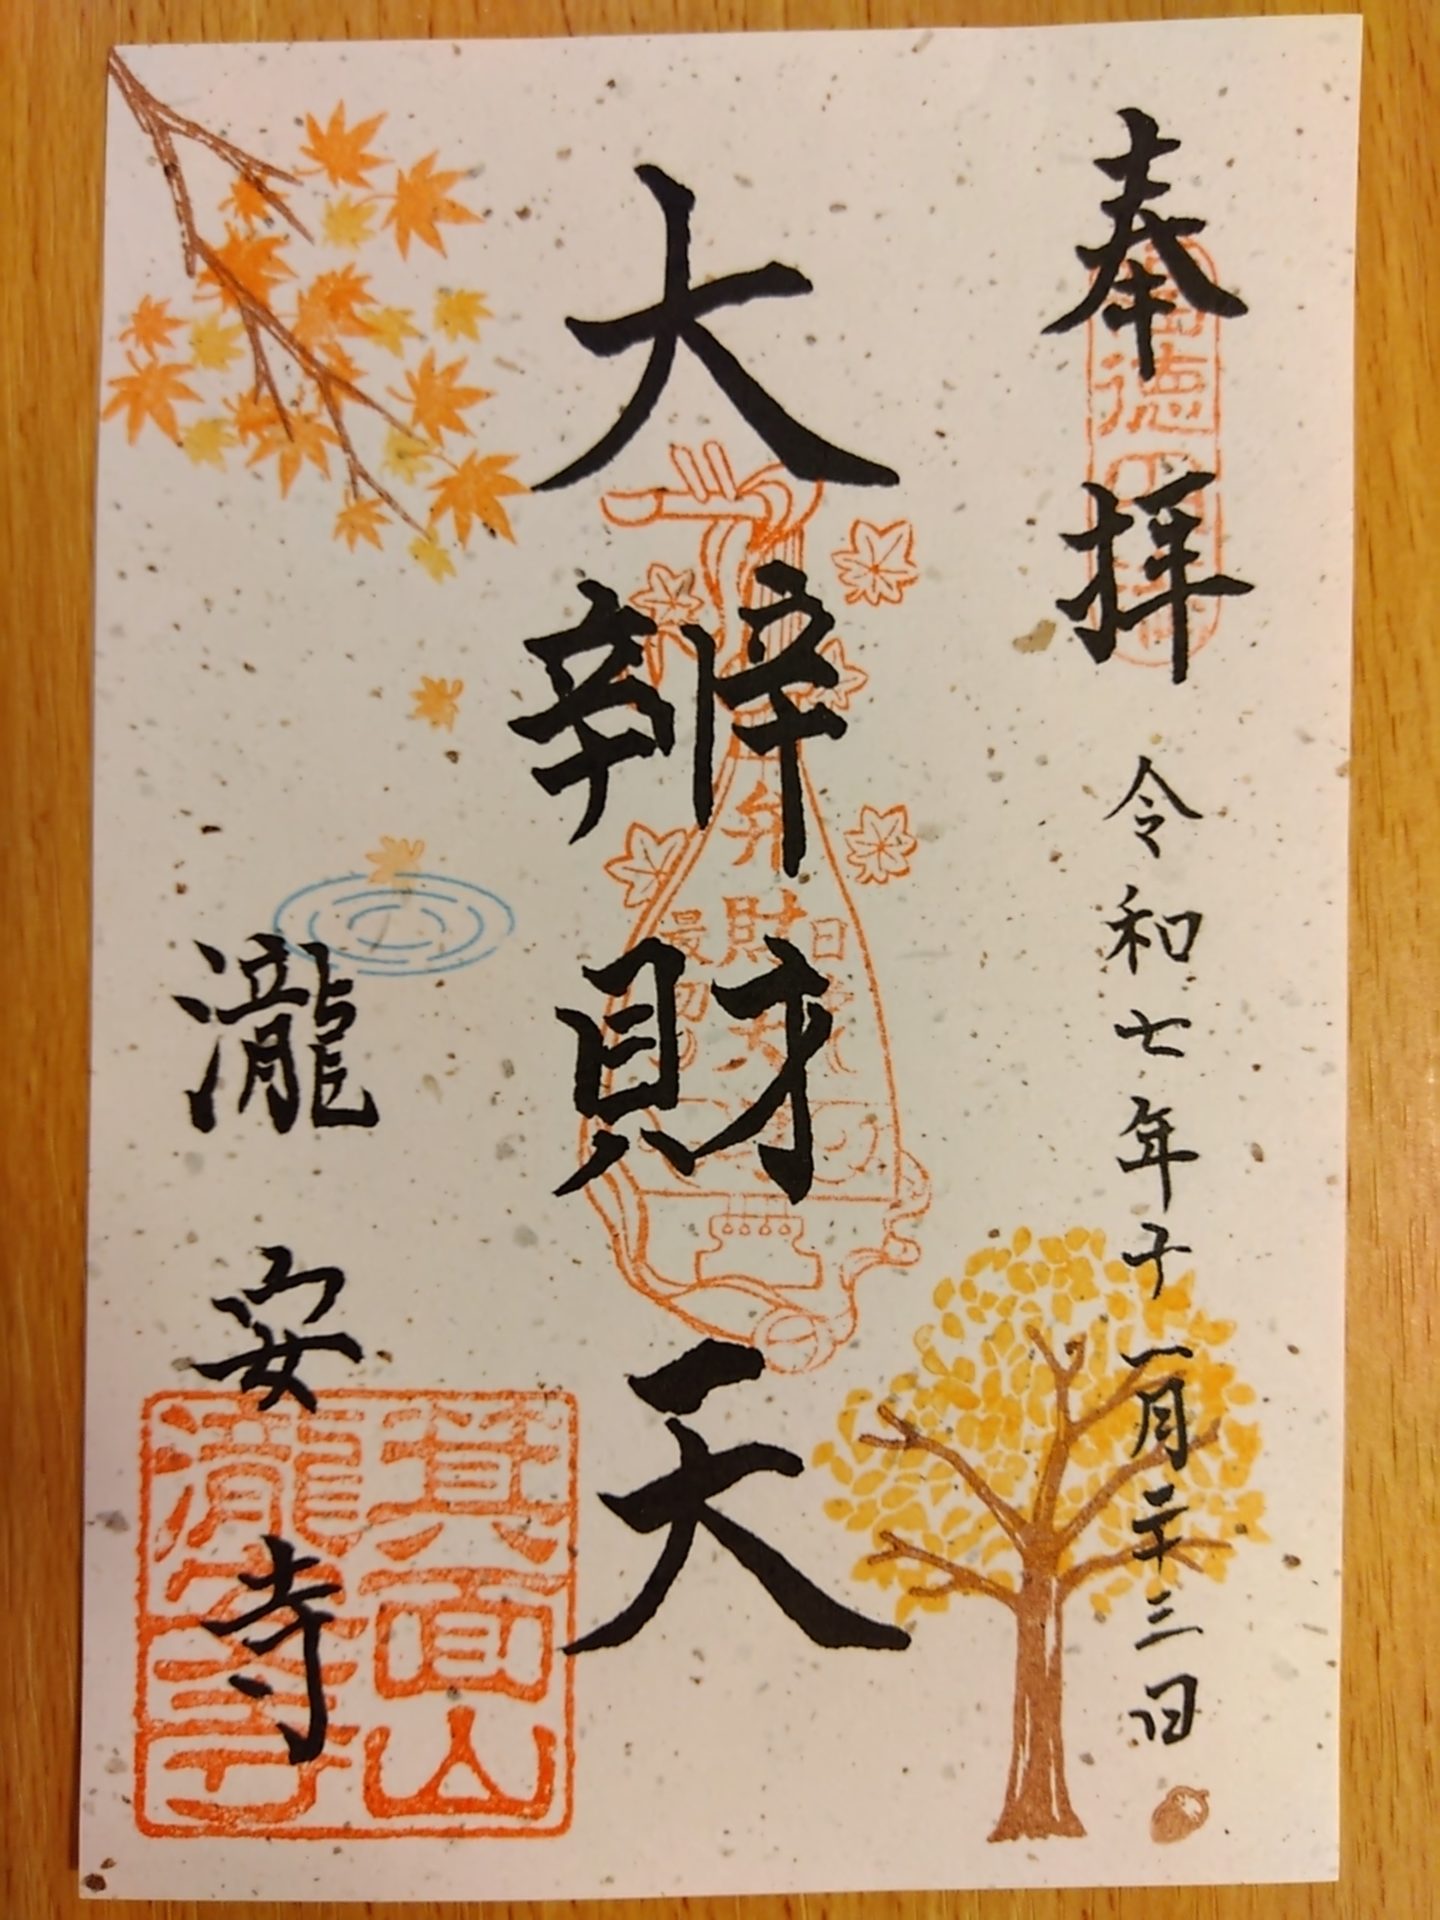 奉拝
令和七年十一月二十三日
徳
大辨財天
日
弁財天
最初
瀧安寺
箕面山
瀧安寺